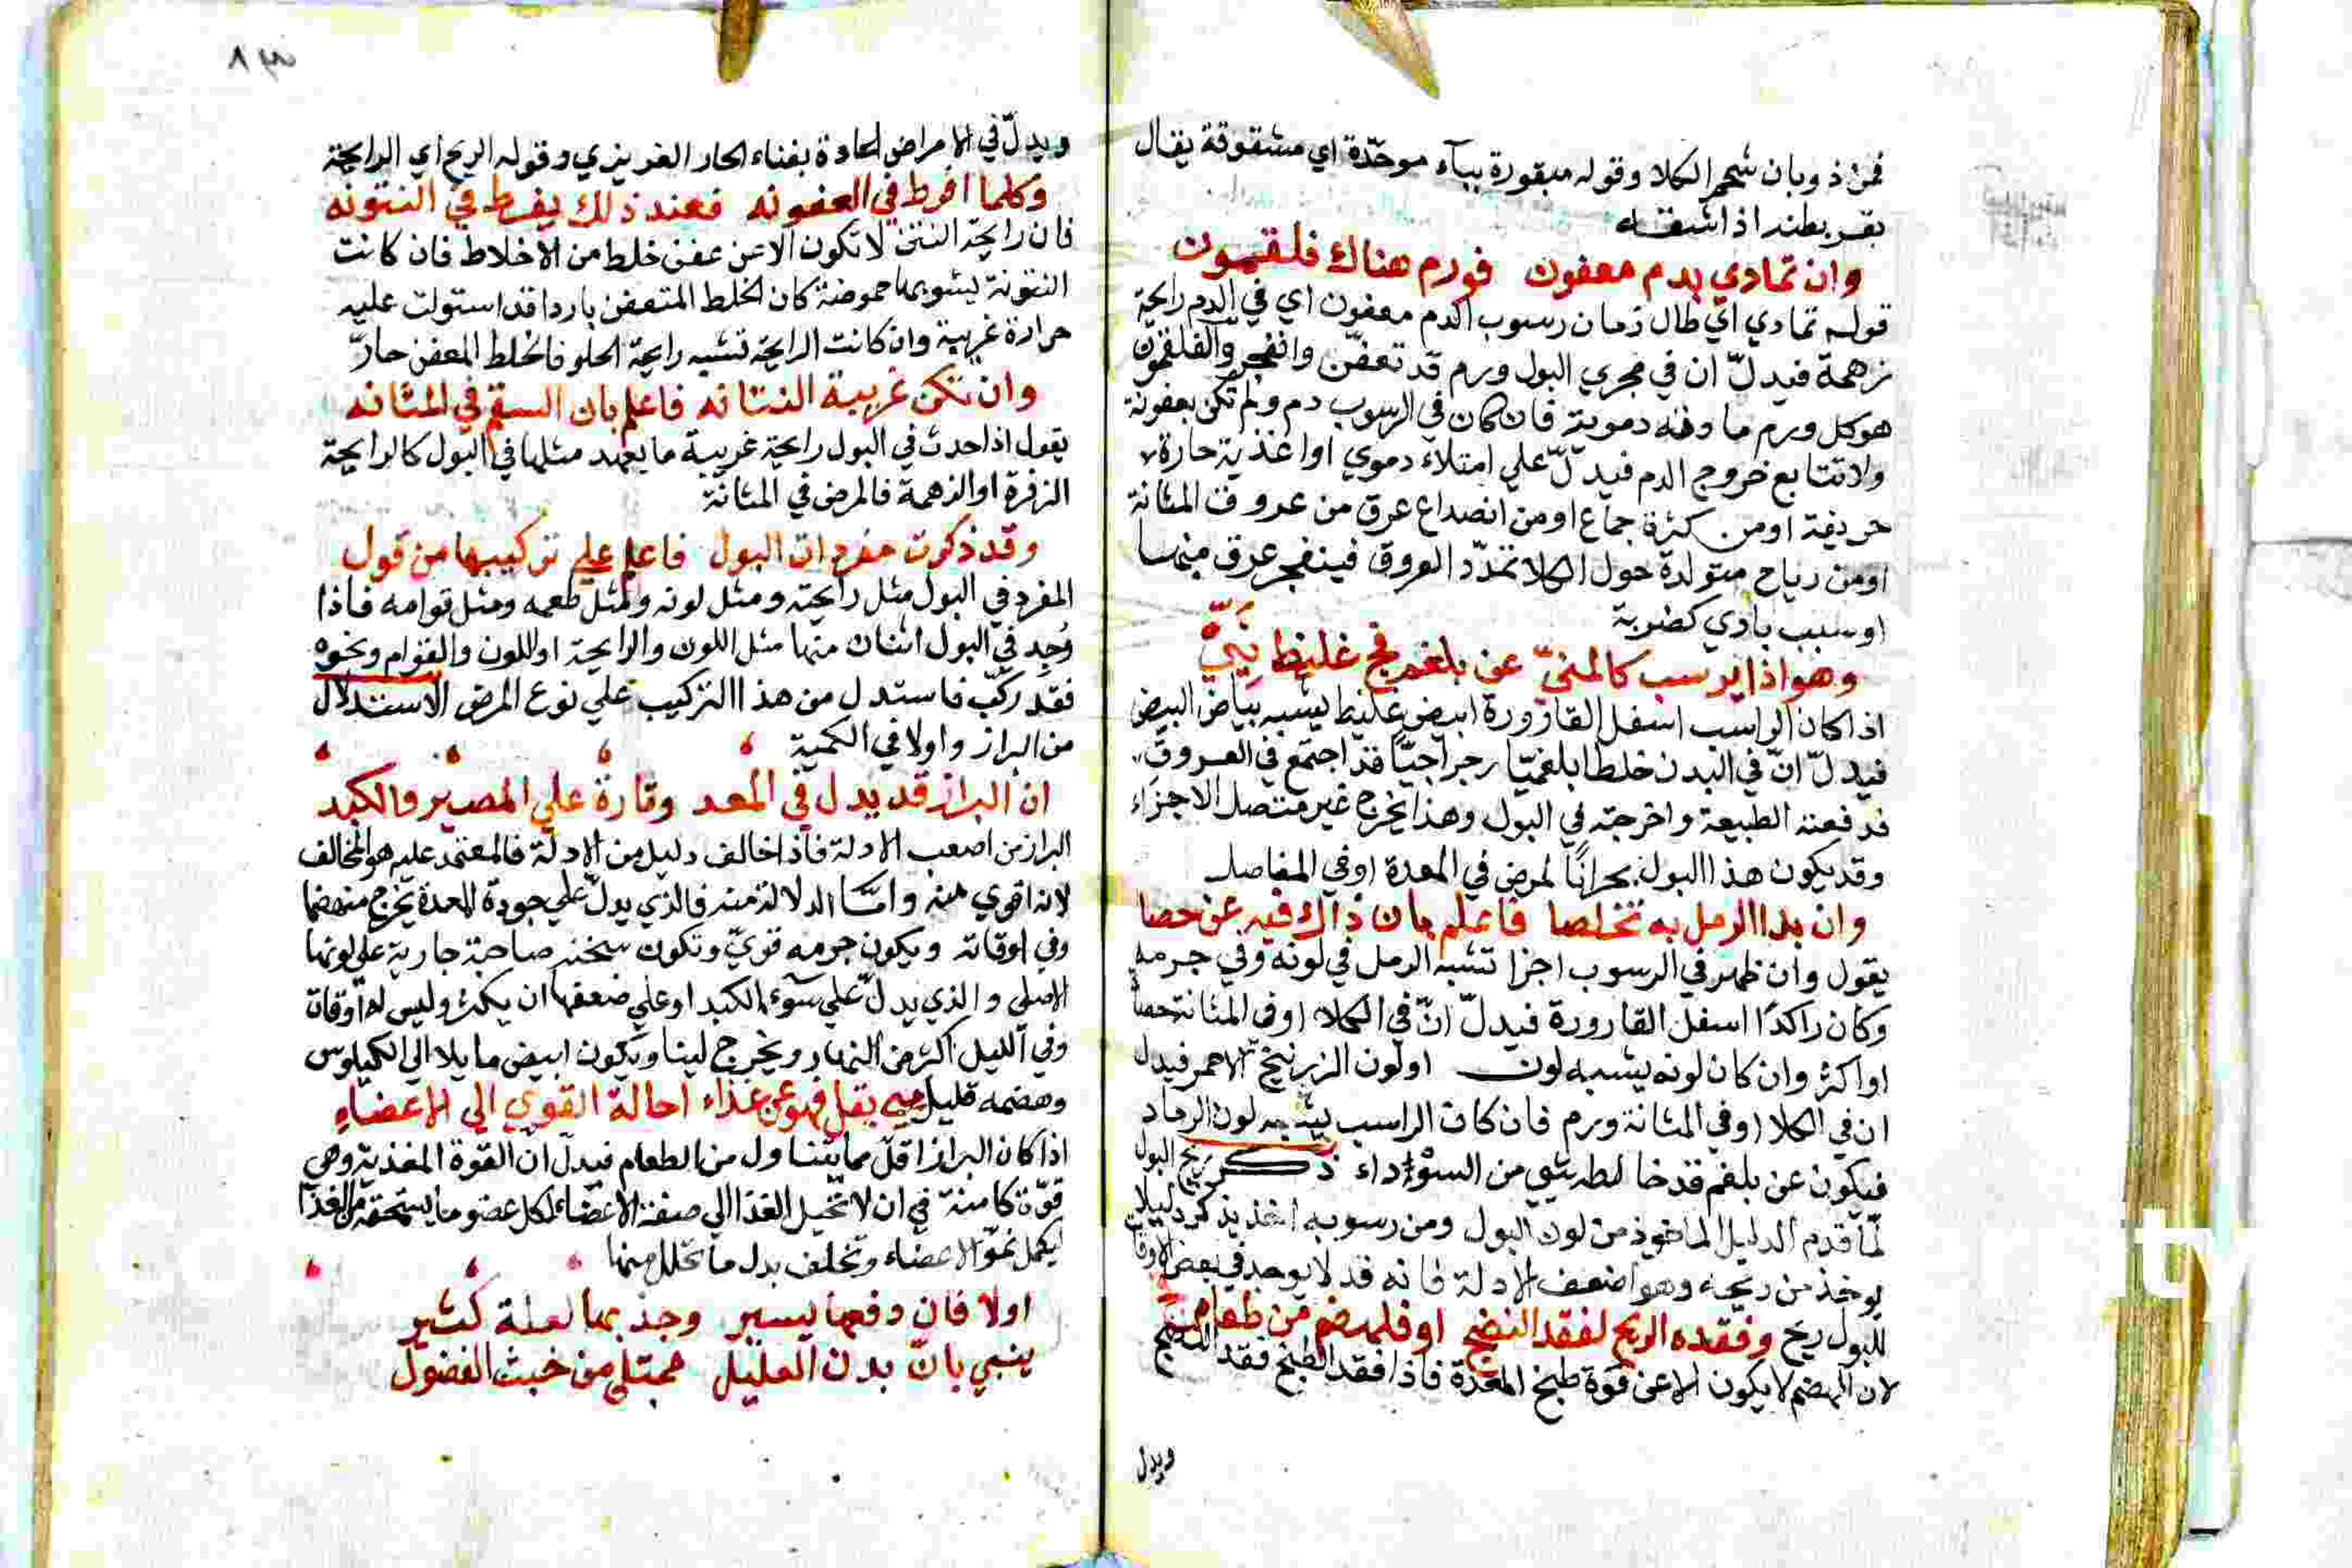 فمن ذوبان شحم الكلا وقوله مبقورة ببآء موحّدة اي مشقوقة يقال
بقر بطنه اذا شقه
وان تمادي بدم معفون فورم هناك فلقمون
قوله تمادي اي طال زمان رسوب الدم معفون اي في الدم رايحة
زهمة فيدلّ ان في مجري البول ورم قد تعفّن وانفجر والفلقمون
هو كل ورم مادته دموية فان كان في الرسوب دم ولم تكن بعفونة
ولا تتابع خروج الدم فيدلّ علي امتلاء دموي او اغذية حارة
حريفة او من كثرة جماع او من انصداع عرق من عروق المثانة
او من رياح متولدة حول الكلا تمدّد العروق فينفجر عرق منها
او سبب بادي كضربة
وهو اذا يرسب كالمنيّ عن بلغم فج غليظ نيّ
اذا كان الراسب اسفل القارورة ابيض غليظ يشبه بياض البيض
فيدلّ انّ في البدن خلطا بلغميّا رجراجيّا قد اجتمع في العروق
فدفعته الطبيعة واخرجته في البول وهذا يخرج غير متصل الاجزاء
وقد يكون هذا البول بحرانًا لمرض في المعدة او في المفاصل
وان بدا الرمل به تخلصا فاعلم بان ذاك فيه عن حصا
يقول وان ظهر في الرسوب اجزا تشبه الرمل في لونه وفي جرمه
وكان راكدًا اسفل القارورة فيدلّ انّ في الكلا او في المثانة حصاً
او اكثر وان كان لونه يشبه لون او لون الزرنيخ الاحمر فيدل
ان في الكلا او في المثانة ورم فان كان الراسب يشبه لون الرماد
فيكون عن بلغم قد خالطه شي من السوداء ذكر ريح البول
لمّا قدم الدليل الماخوذ من لون البول ومن رسوبه اخذ يذكر دليلا
يوخذ من ريحه وهو اضعف الادلة فانه قد لا يوجد في بعض الاوقات
للبول ريح وفقده الريح لفقد النضج او فلهضم من طعام
لان الهضم لا يكون الا عن قوة طبخ المعدة فاذا فقد الطبخ فقد النضج
ويدل
ويدلّ في الامراض الحادة بفناء الحار الغريزي وقوله الريح اي الرايحة
وكلما افرط في العفونه فعند ذلك يفرط في النتونه
فان رايحة النتن لا تكون الا عن عفن خلط من الاخلاط فان كانت
النتونة يشوبها حموضة كان الخلط المتعفن باردا قد استولت عليه
حرارة غريبة وان كانت الرايحة تشبه رايحة الحلو فالخلط المعفن حارّ
وان تكن غريبة النتانه فاعلم بان السقم في المثانه
يقول اذا حدث في البول رايحة غريبة ما يعهد مثلها في البول كالرايحة
الزفرة او الزهمة فالمرض في المثانة
وقد ذكرت مفردات البول فاعلم علي تركيبها من قول
المفرد في البول مثل رايحته ومثل لونه ومثل طعمه ومثل قوامه فاذا
وُجِد في البول اثنان منها مثل اللون والرايحة او اللون والقوام ونحوه
فقد ركّب فاستدل من هذا التركيب علي نوع المرض الاستدلال
من البراز واولا في الكمية
ان البراز قد يدل في المعد وتارة علي المصير والكبد
البراز من اصعب الادلة فاذا خالف دليل من الادلة فالمعتمد عليه هو المخالف
لانه اقوي منه وامّا الدلالة منه فالذي يدلّ علي جودة المعدة يخرج منهضما
وفي اوقاته ويكون جرمه قويّ وتكون سخنة صاحبة جارية علي لونها
الاصلي والذي يدلّ علي سوء الكبد او علي ضعفها ان يكثر وليس له اوقات
وفي الليل اكثر من النهار ويخرج لينا ويكون ابيض مايلا الي الكيلوس
وهضمه قليل متي يقل فهو عن غذاء احالة القوي الي الاعضاء
اذا كان البراز اقلّ مما يتناول من الطعام فيدلّ ان القوة المغذية وهي
قوّة كامنة في ان لا تحيل الغذا الي صفة الاعضاء لكل عضو ما يستحقه من الغذا
ليكمل نموّ الاعضاء وتخلف بدل ما تحلل منها
اولا فان دفعها يسير وجذبها لعلة كثير
ينبي بانّ بدن العليل ممتلي من خبث الفضول